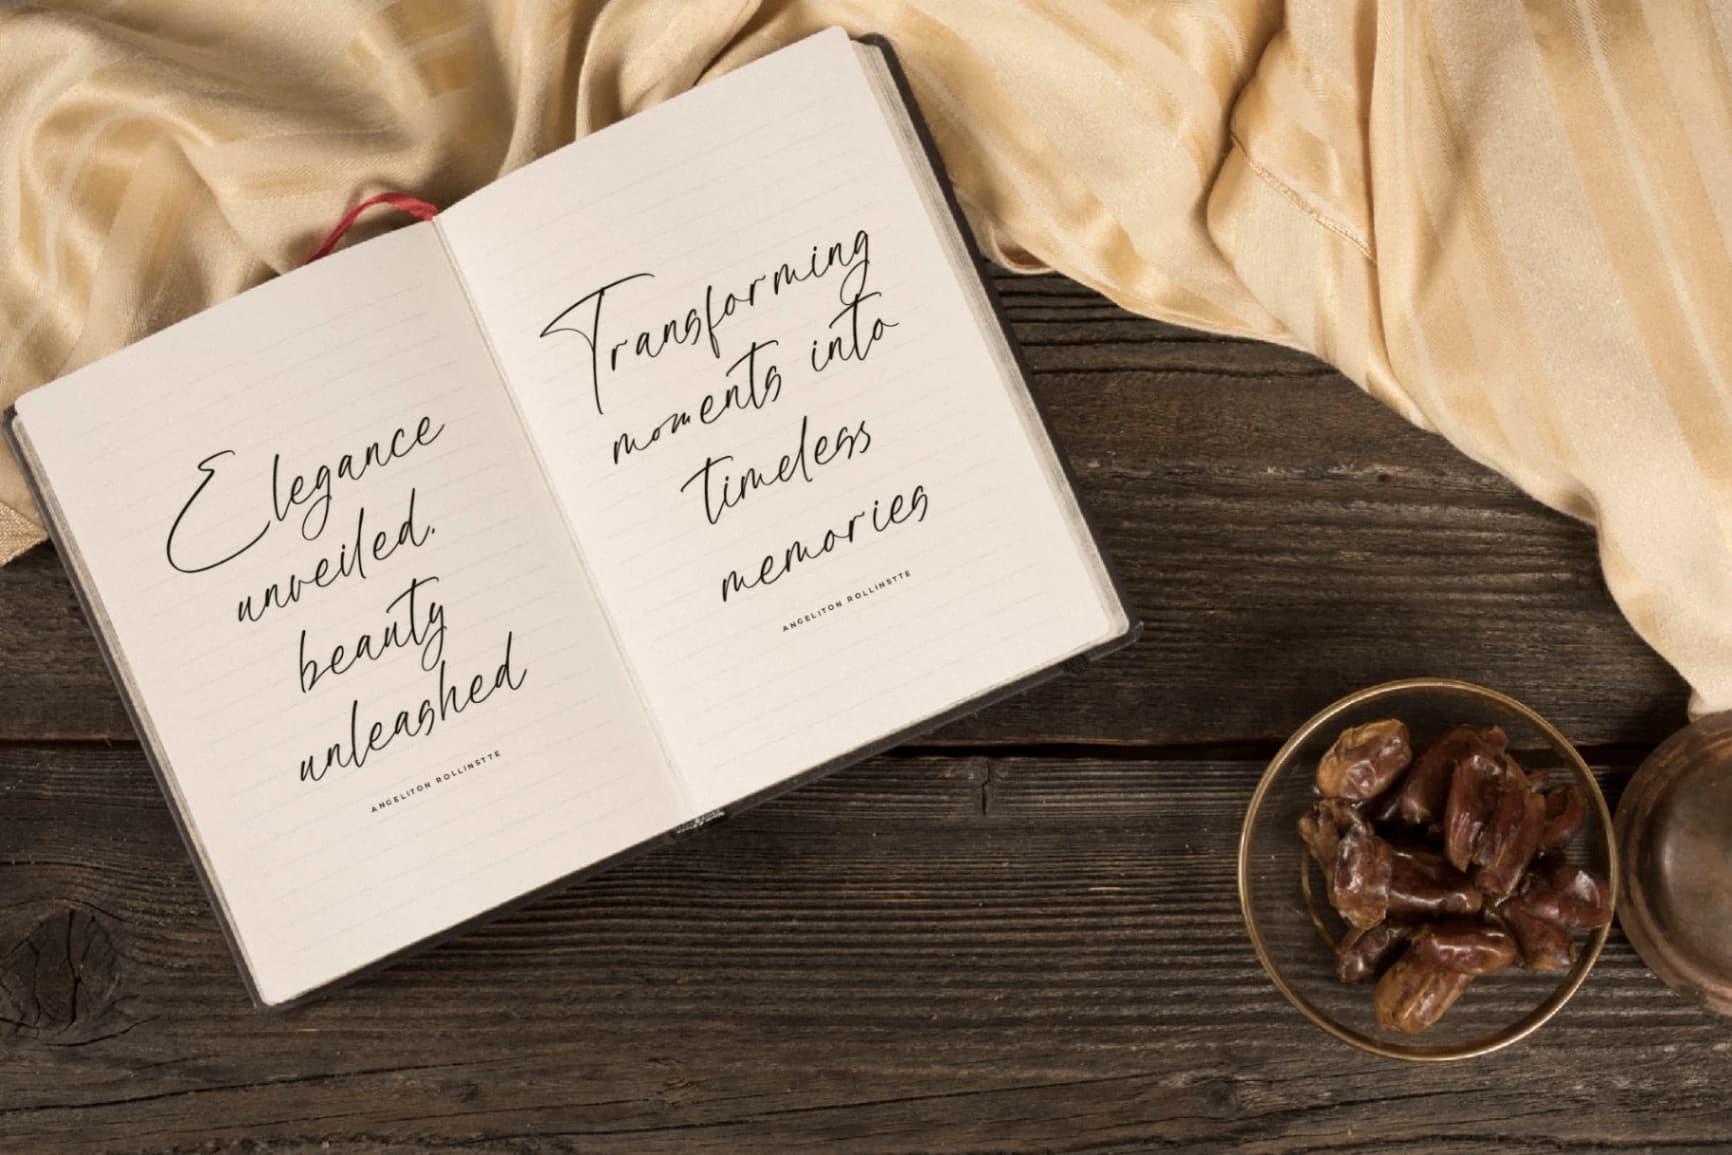 Elegance
unveiled.
beauty
unleashed
ANGELITON ROLLINSTTE
Transforming
moments into
timeless
memories
ANGELITON ROLLINSTTE